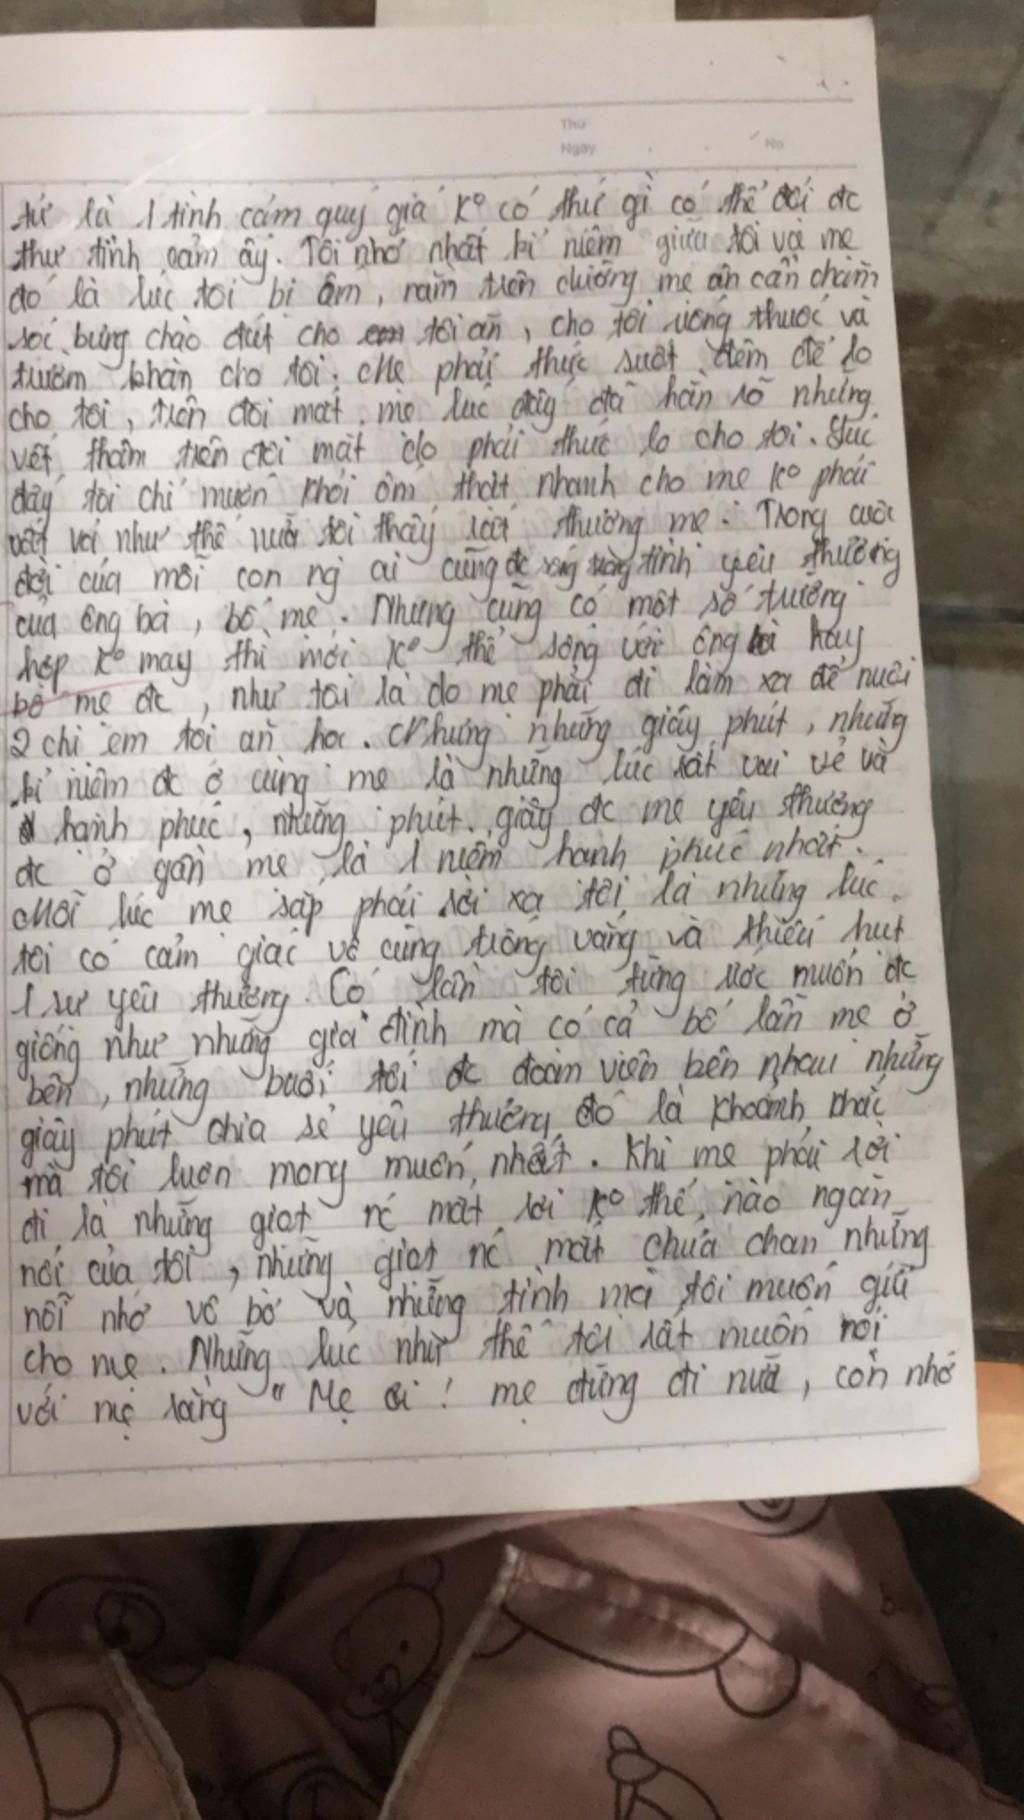 Thứ
Ngày No
tử là 1 tình cảm quý giá Kº có thứ gì có thể đổi đc
thự tình cảm ấy. Tôi nhớ nhất kỉ niệm giữa tôi và mẹ
đó là lúc tôi bị ốm, nằm trên giường mẹ ân cần chăm
sóc bưng cháo đút cho tôi ăn, cho tôi uống thuốc và
trườm khăn cho tôi. Mẹ phải thức suốt đêm để lo
cho tôi, trên đôi mắt mẹ lúc đấy đã hằn rõ những
vết thâm trên đôi mắt do phải thức lo cho tôi. Lúc
đấy tôi chỉ muốn khỏi ốm thật nhanh cho mẹ Kº phải
vất vả như thế nữa tôi thấy rất thương mẹ. Trong cuộc
đời của mỗi con ng ai cũng đc sống trong tình yêu thương
của ông bà, bố mẹ. Nhưng cũng có một số trường
hợp Kº may thì mới Kº thể sống với ông bà hay
bố mẹ đc, như tôi là do mẹ phải đi làm xa để nuôi
2 chị em tôi ăn học. Nhưng những giây phút, những
kỉ niệm đc ở cùng mẹ là những lúc rất vui vẻ và
hạnh phúc, những phút giây đc mẹ yêu thương
đc ở gần mẹ là 1 niềm hạnh phúc nhất.
Mỗi lúc mẹ sắp phải rời xa tôi là những lúc
tôi có cảm giác vô cùng trống vắng và thiếu hụt
1 sự yêu thương. Có lần tôi từng ước muốn đc
giống như những gia đình mà có cả bố lẫn mẹ ở
bên, những buổi tối đc đoàn viên bên nhau những
giây phút chia sẻ yêu thương đó là khoảnh khắc
mà tôi luôn mong muốn nhất. Khi mẹ phải rời
đi là những giọt nc mắt rơi Kº thể nào ngăn
nổi của tôi, những giọt nc mắt chứa chan những
nỗi nhớ vô bờ và những tình mà tôi muốn giữ
cho mẹ. Những lúc như thế tôi rất muốn nói
với mẹ rằng "Mẹ ơi! mẹ đừng đi nữa, con nhớ